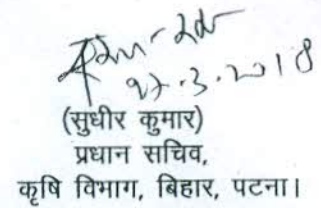 27.3.2018
(सुधीर कुमार)
प्रधान सचिव,
कृषि विभाग, बिहार, पटना।